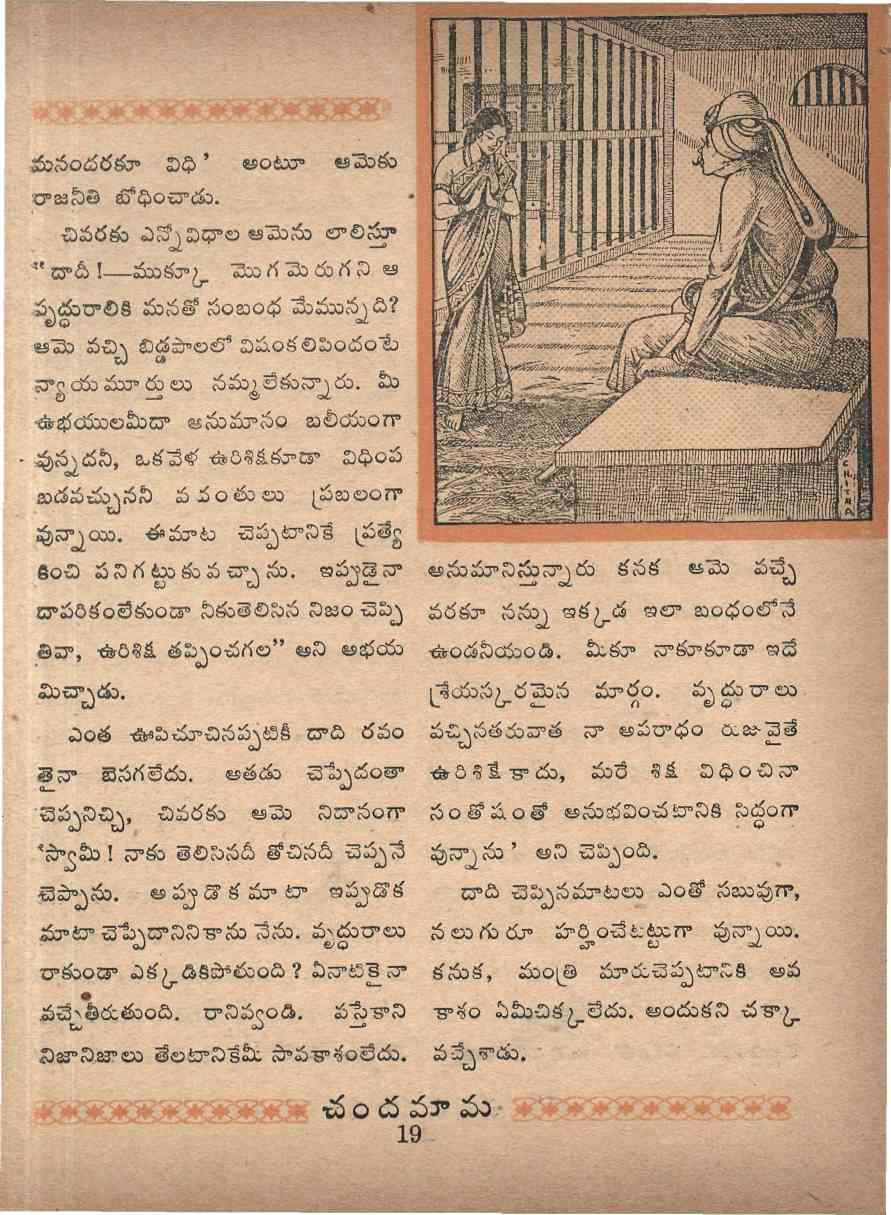 మనందరకూ విధి' అంటూ ఆమెకు
రాజనీతి బోధించాడు.
చివరకు ఎన్నోవిధాల ఆమెను లాలిస్తూ
“దాదీ!—ముక్కూ మొగమెరుగని ఆ
వృద్ధురాలికి మనతో సంబంధ మేమున్నది?
ఆమె వచ్చి బిడ్డపాలలో విషంకలిపిందంటే
న్యాయమూర్తులు నమ్మలేకున్నారు. మీ
ఉభయులమీదా అనుమానం బలీయంగా
వున్నదనీ, ఒకవేళ ఉరిశిక్షకూడా విధింప
బడవచ్చుననీ వదంతులు ప్రబలంగా
వున్నాయి. ఈమాట చెప్పటానికే ప్రత్యే
కించి పనిగట్టుకువచ్చాను. ఇప్పుడైనా
దాపరికంలేకుండా నీకుతెలిసిన నిజం చెప్పి
తివా, ఉరిశిక్ష తప్పించగల” అని అభయ
మిచ్చాడు.
ఎంత ఊపిచూచినప్పటికీ దాది రవం
తైనా బెసగలేదు. అతడు చెప్పేదంతా
చెప్పనిచ్చి, చివరకు ఆమె నిదానంగా
'స్వామీ! నాకు తెలిసినదీ తోచినదీ చెప్పనే
చెప్పాను. అప్పుడొకమాటా ఇప్పుడొక
మాటా చెప్పేదానినికాను నేను. వృద్ధురాలు
రాకుండా ఎక్కడికిపోతుంది? ఏనాటికైనా
వచ్చేతీరుతుంది. రానివ్వండి. వస్తేకాని
నిజానిజాలు తేలటానికేమీ సావకాశంలేదు.
CHITRA
అనుమానిస్తున్నారు కనక ఆమె వచ్చే
వరకూ నన్ను ఇక్కడ ఇలా బంధంలోనే
ఉండనీయండి. మీకూ నాకూకూడా ఇదే
శ్రేయస్కరమైన మార్గం. వృద్ధురాలు
వచ్చినతరువాత నా అపరాధం రుజువైతే
ఉరిశిక్షే కాదు, మరే శిక్ష విధించినా
సంతోషంతో అనుభవించటానికి సిద్ధంగా
వున్నాను' అని చెప్పింది.
దాది చెప్పినమాటలు ఎంతో సబువుగా,
నలుగురూ హర్షించేటట్టుగా వున్నాయి.
కనుక, మంత్రి మారుచెప్పటానికి అవ
కాశం ఏమీచిక్కలేదు. అందుకని చక్కా
వచ్చేశాడు.
చందమామ
19